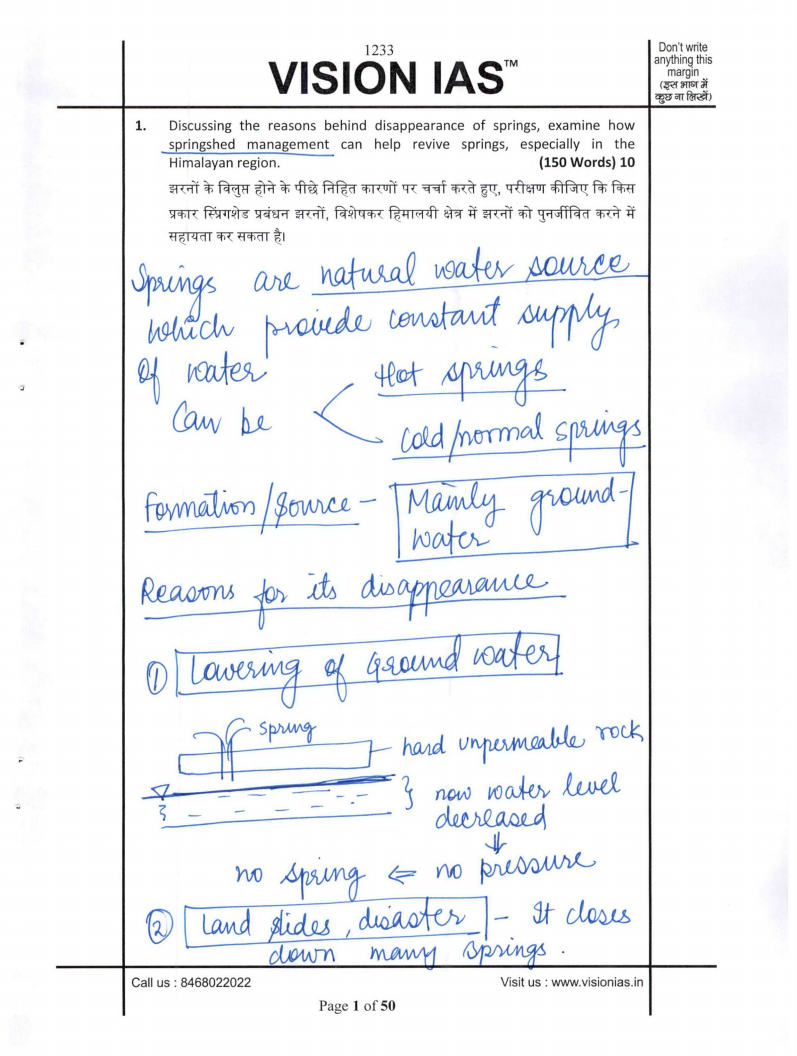 1233
VISION IAS™
Don't write
anything this
margin
(इस भाग में
कुछ ना लिखें)
1. Discussing the reasons behind disappearance of springs, examine how
springshed management can help revive springs, especially in the
Himalayan region. (150 Words) 10
झरनों के विलुप्त होने के पीछे निहित कारणों पर चर्चा करते हुए, परीक्षण कीजिए कि किस
प्रकार स्प्रिंगशेड प्रबंधन झरनों, विशेषकर हिमालयी क्षेत्र में झरनों को पुनर्जीवित करने में
सहायता कर सकता है।
Springs are natural water source
which provide constant supply
of water
Can be
Hot springs
cold/normal springs
Formation/Source – Mainly ground-
water
Reasons for its disappearance
① Lowering of Ground water
spring
hard unpermeable rock
now water level
decreased
⇓
no spring ⇐ no pressure
② Land slides, disaster – It closes
down many springs.
Call us : 8468022022 Visit us : www.visionias.in
Page 1 of 50